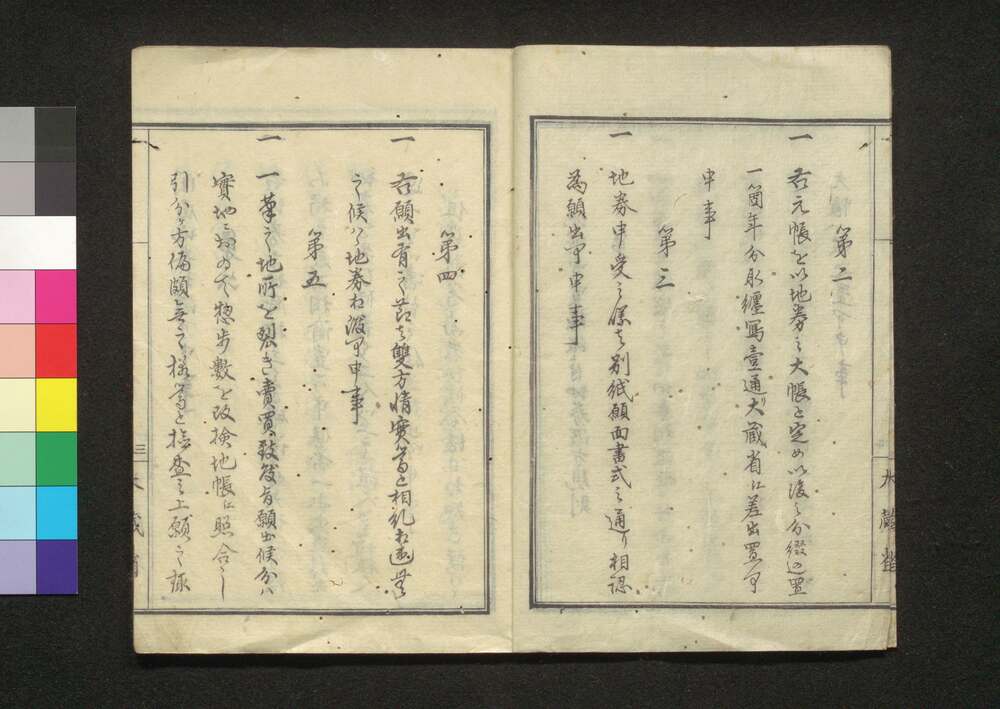 第二
一 右元帳を以地券之大帳と定め以後之分綴込置
一箇年分取纏写壹通ツヽ大蔵省江差出置可
申事
第三
一 地券申受之儀者別紙願面書式之通り相認
為願出可申事
第四
一 右願出有之節者雙方情實等を相糺相違無
之候ハヽ地券相渡可申事
第五
一 一筆之地所を裂き賣買致度旨願出候分ハ
實地ニ就て惣歩数を改検地帳江照合し
引分方偏頗無之様篤と検査之上願之通
三
大蔵省